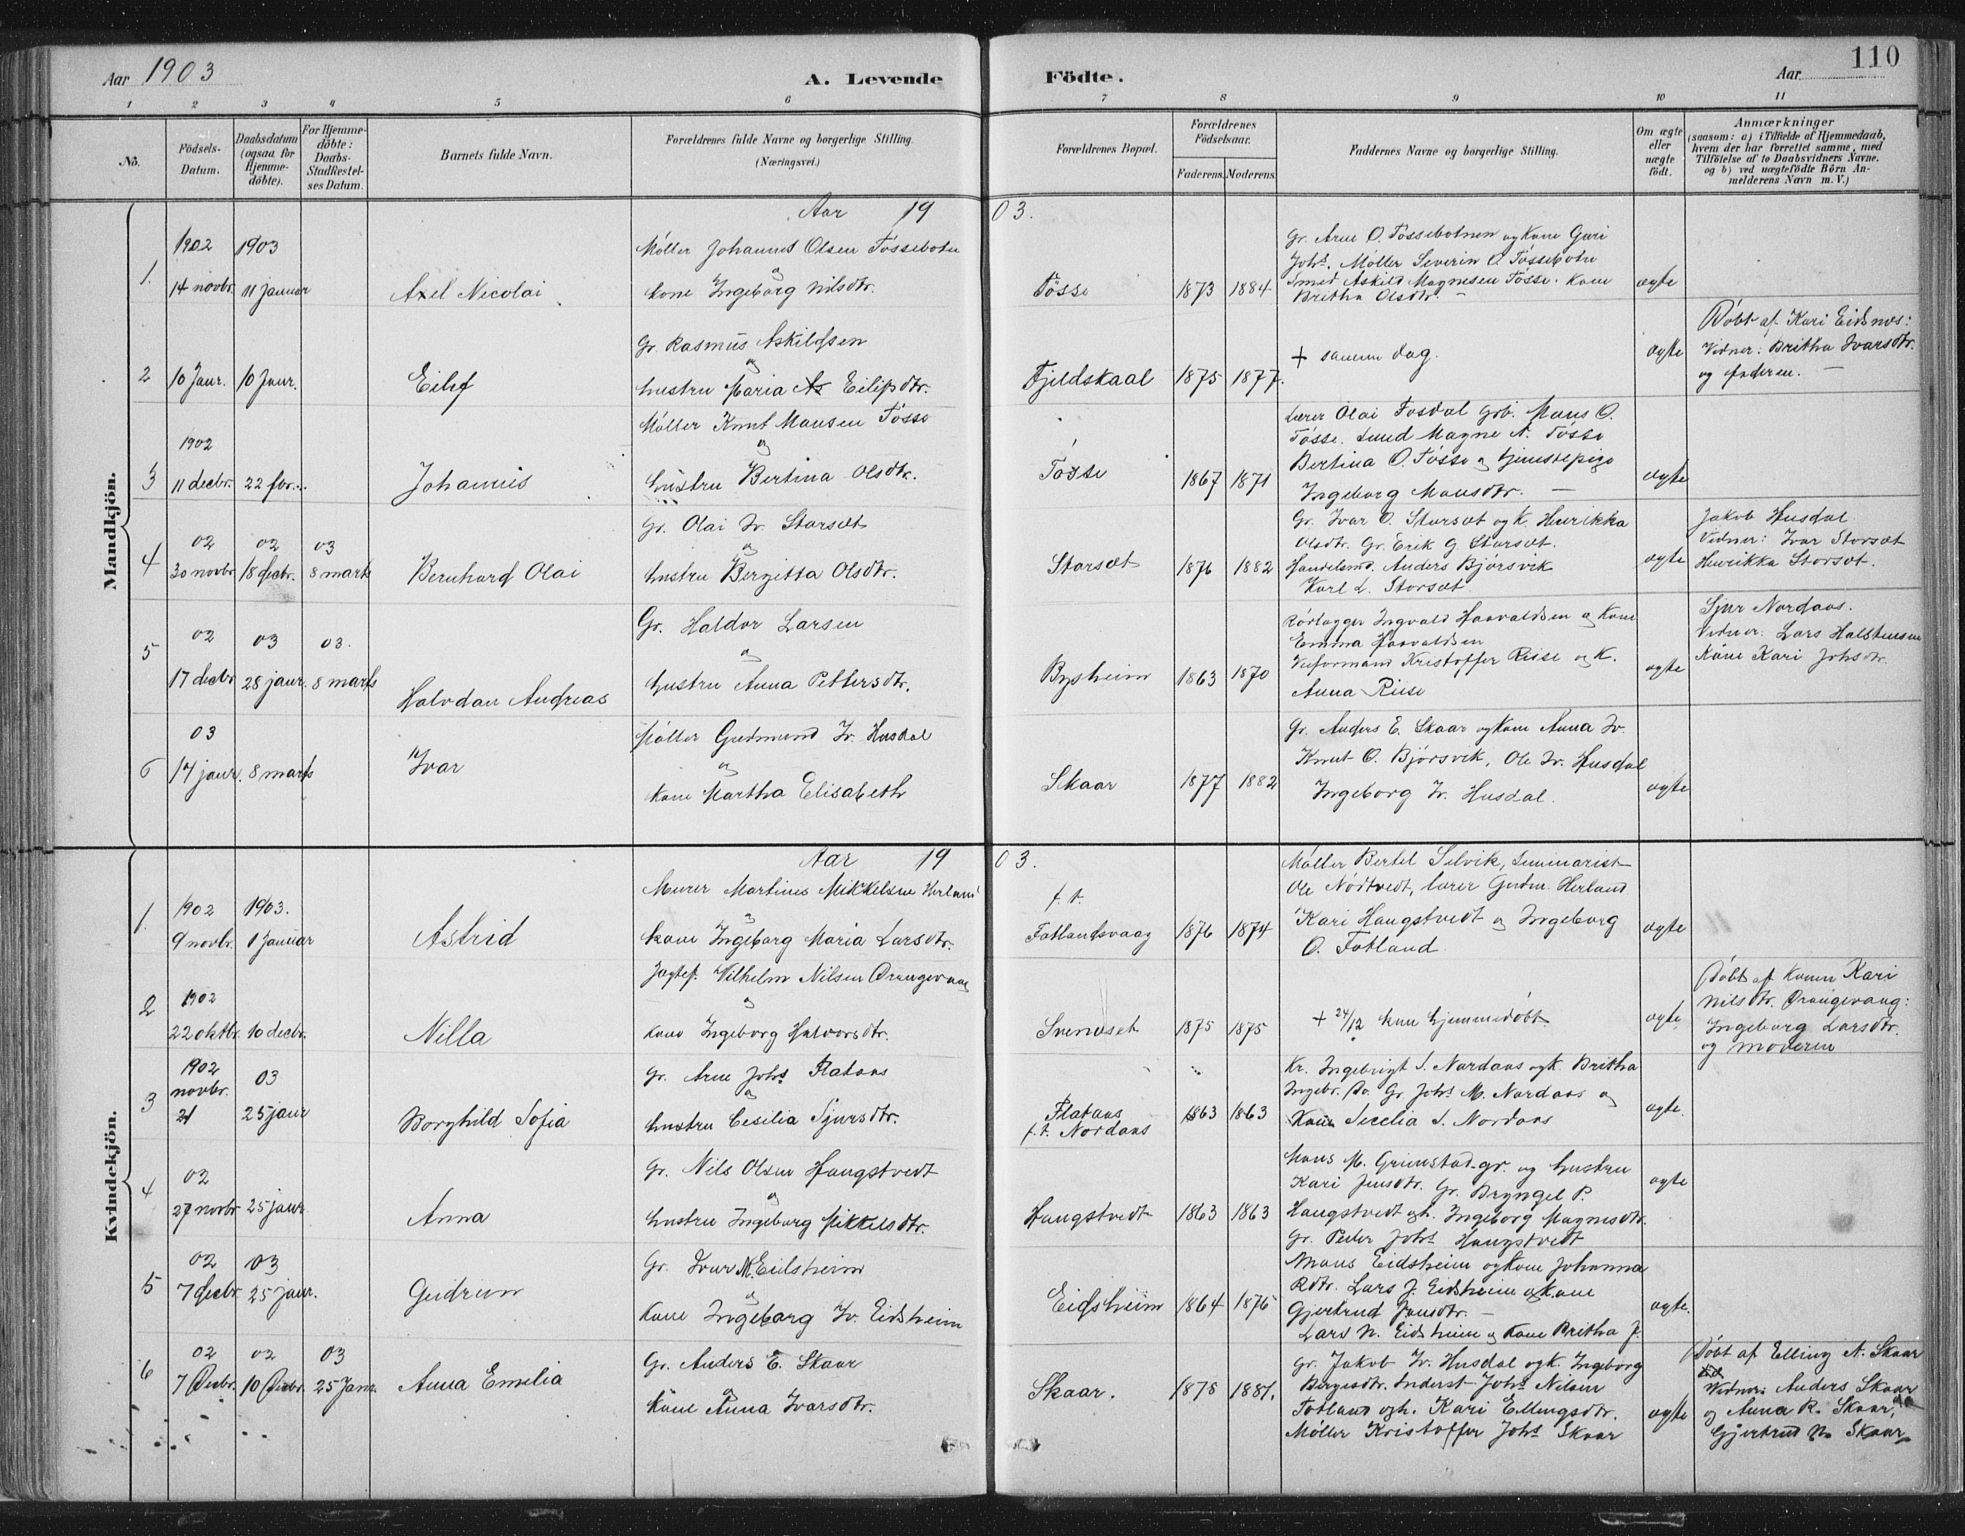 110
Aar 1903
A. Levende
Födte.
Aar
1 2 3 4 5 6 7 8 9 10 11
No.
Födsels-
Datum.
Daabsdatum
(ogsaa for
Hjemme-
döbte).
For Hjemme-
döbte:
Daabs-
Stadfæstel-
ses Datum.
Barnets fulde Navn.
Forældrenes fulde Navne og borgerlige Stilling
(Næringsvei.)
Forældrenes Bopæl.
Forældrenes
Födselsaar.
Faderens.
Moderens.
Faddernes Navne og borgerlige Stilling.
Om ægte
eller
uægte
födt.
Anmærkninger
(saasom: a) i Tilfælde af Hjemmedaab,
hvem der har forrettet samme, med
Tilföielse af to Daabsvidners Navne.
og b) ved uægtefödte Börn An-
melderens Navn m. V.)
Mandkjön.
Aar 1903.
1.
1902
14 novbr.
1903
11 januar
Axel Nicolai
Møller Johannes Olsen Tössebotn
og
kone Ingeborg Nilsdtr.
Tösse
1873
1884
Gr. Arne O. Tössebotnen og kone Guri
Johs. Møller Severin O. Tössebotn
Smed Askild Magnesen Tösse. kone
Britha Olsdtr. –
ægte
2
10 Jaur.
10 Jaur.
Eilif
Gr. Rasmus Askildsen
og
hustru Maria Eilifsdtr.
Fjeldskaal
1875
1877.
+ samme dag.
ægte
Döbt af Kari Eidsnes:
Vidner: Britha Ivarsdtr.
og faderen. –
3
1902
11 decbr.
22 febr.
Johannes
Møller Knut Mansen Tösse
og
hustru Bertina Olsdtr.
Tösse
1867
1871
Lærer Olai Fosdal Grb. Mons O.
Tösse. Smed Magne A. Tösse
Bertina O. Tösse og tjenestepige
Ingeborg Monsdtr. –
ægte
4
02
30 novbr.
02
18 decbr.
03
8 marts
Bernhard Olai
Gr. Olai Iv. Storsæt
og
hustru Bergitta Olsdtr.
Storsæt
1876
1882
Gr. Ivar O. Storsæt og k. Henrikka
Olsdtr. Gr. Erik G Storsæt.
Handelsmd. Anders Bjørsvik
Karl L. Storsæt.
ægte
Jakob Husdal
Vidner: Ivar Storsæt
Henrikka Storsæt.
5
02
17 decbr
03
28 jaur.
03.
8 marts
Halvdan Andreas
Gr. Haldor Larsen
og
hustru Anna Pettersdtr.
Bysheim
1863
1870
Rørlægger Ingvald Haavaldsen og kone
Emma Haavaldsen
Kristoffer Riise og k.
Anna Riise
ægte
Sjur Nordaas.
Vidner: Lars Halstensen
Kone Kari Johsdtr.
6
03
17 jaur.
8 marts
Ivar
Møller Gudmund Iv. Husdal
og
kone Martha Elisabeth
Skaar
1877
1882
Gr. Anders E. Skaar og kone Anna Iv.
Knut O. Bjørsvik, Ole Iv. Husdal
Ingeborg Iv. Husdal.
ægte
Kvindekjön.
Aar 1903.
1.
1902
9 novbr.
1903.
1 Januar
Astrid
Murer Martines Mikkelsen Herland
og
kone Ingeborg Maria Larsdtr.
f. t.
Fotlandsvaag
1876
1874
Møller Bertel Selvik, Seminarist
Ole Nödtvedt, lærer Gudm. Herland
Kari Haugstvedt og Ingeborg
O. Fotland.
ægte
2
1902
22 oktbr.
10 decbr.
Nilla
Jægtef. Vilhelm Nilsen Drangevaag
og
kone Ingeborg Halvorsdtr.
1875
1875
+ 24/12 kun hjemmedøbt
ægte.
Döbt af konen Kari
Nilsdtr. Drangevaag:
Ingeborg Larsdtr.
og moderen
3
1902
novbr.
21
03
25 jaur
Borghild Sofia
Gr. Arne Johs. Flataas
og
hustru Cesilia Sjursdtr.
Flataas
f. t. Nordaas
1863
1863
Kr. Ingebrigt S. Nordaas og k. Britha
Ingebr. Do. Gr. Johs. M. Nordaas og
Kone Secelia S. Nordaas
ægte.
4
02
27 novbr
25 jaur.
Anna
Gr. Nils Olsen Haugstvedt
og
hustru Ingeborg Mikkelsdtr.
Haugstvedt
1863
1863
Mons M. Grimstad gr. og hustru
Kari Jensdtr. Gr. Bryngel P.
Haugstvedt og h. Ingeborg Magnesdtr.
Gr. Peder Johs. Haugstvedt
ægte
5
02
7 decbr
03
25 jaur.
Gudrun
Gr. Ivar M. Eidsheim
og
Kone Ingeborg Iv. Eidsheim
Eidsheim
1864
1876
Mons Eidsheim og kone Johanna
Rdtr. Lars J. Eidsheim og kone
Gjertrud Jansdtr. –
Lars N. Eidsheim og kone Britha J.
ægte.
6
02
7 Decbr.
02
10 Decbr.
03
25 Janr.
Anna Emilia
Gr. Anders E. Skaar
og
kone Anna Ivarsdtr.
Skaar.
1875
1881.
Gr. Jakob Iv. Husdal og k. Ingeborg
Johs. Nilsen
Fotland og h. Kari Ellingsdtr.
Møller Kristoffer Johs. Skaar
ægte
Döbt af Elling A. Skaar
Vidner: Anders Skaar
og Anna R. Skaar,
Gjertrud N. Skaar